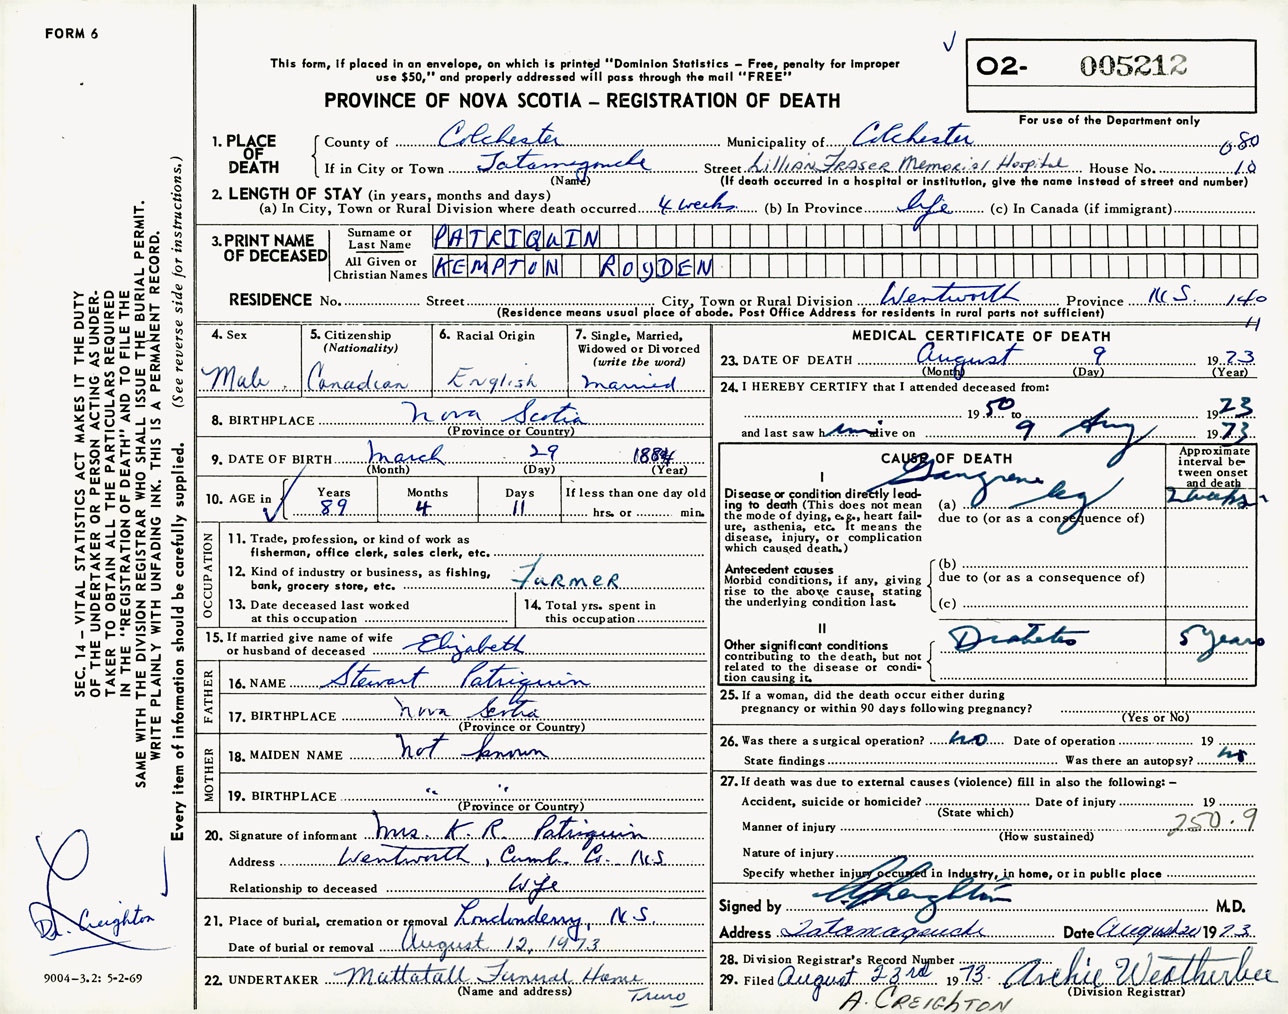 FORM 6
This form, if placed in an envelope, on which is printed "Dominion Statistics – Free, penalty for improper
use $50," and properly addressed will pass through the mail "FREE"
O2- 005212
PROVINCE OF NOVA SCOTIA – REGISTRATION OF DEATH
For use of the Department only
1. PLACE OF DEATH
County of Colchester Municipality of Colchester 080
If in City or Town Tatamagouche Street Lillian Fraser Memorial Hospital House No. 10
(Name) (If death occurred in a hospital or institution, give the name instead of street and number)
2. LENGTH OF STAY (in years, months and days)
(a) In City, Town or Rural Division where death occurred 4 weeks (b) In Province life (c) In Canada (if immigrant)
3. PRINT NAME OF DECEASED
Surname or Last Name PATRIQUIN
All Given or Christian Names KEMPTON ROYDEN
RESIDENCE No. Street City, Town or Rural Division Wentworth Province N.S. 140
(Residence means usual place of abode. Post Office Address for residents in rural parts not sufficient) 11
4. Sex Male
5. Citizenship (Nationality) Canadian
6. Racial Origin English
7. Single, Married, Widowed or Divorced (write the word) married
8. BIRTHPLACE Nova Scotia
(Province or Country)
9. DATE OF BIRTH March 29 1884
(Month) (Day) (Year)
10. AGE in Years 89 Months 4 Days 11
If less than one day old
hrs. or min.
OCCUPATION
11. Trade, profession, or kind of work as
fisherman, office clerk, sales clerk, etc.
12. Kind of industry or business, as fishing,
bank, grocery store, etc. FARMER
13. Date deceased last worked
at this occupation
14. Total yrs. spent in
this occupation
15. If married give name of wife
or husband of deceased Elizabeth
FATHER
16. NAME Stewart Patriquin
17. BIRTHPLACE Nova Scotia
(Province or Country)
MOTHER
18. MAIDEN NAME Not known
19. BIRTHPLACE " "
(Province or Country)
20. Signature of informant Mrs. K. R. Patriquin
Address Wentworth, Cumb. Co. N.S
Relationship to deceased Wife
21. Place of burial, cremation or removal Londonderry, N.S.
Date of burial or removal August 12, 1973
22. UNDERTAKER Mattatall Funeral Home
(Name and address) Truro
MEDICAL CERTIFICATE OF DEATH
23. DATE OF DEATH August 9 1973
(Month) (Day) (Year)
24. I HEREBY CERTIFY that I attended deceased from:
1950 to 1973
and last saw him alive on 9 Aug 1973
CAUSE OF DEATH
Approximate interval between onset and death
I
Disease or condition directly lead-
ing to death (This does not
mean the mode of dying, e.g., heart fail-
ure, asthenia, etc. It means the
disease, injury, or complication
which caused death.)
(a) Gangrene leg 2 weeks
due to (or as a consequence of)
Antecedent causes
Morbid conditions, if any, giving
rise to the above cause, stating
the underlying condition last.
(b)
due to (or as a consequence of)
(c)
II
Other significant conditions
contributing to the death, but not
related to the disease or condi-
tion causing it.
Diabetes 5 years
25. If a woman, did the death occur either during
pregnancy or within 90 days following pregnancy?
(Yes or No)
26. Was there a surgical operation? no Date of operation 19
State findings Was there an autopsy? no
27. If death was due to external causes (violence) fill in also the following: –
Accident, suicide or homicide? Date of injury 19
(State which)
Manner of injury 250.9
(How sustained)
Nature of injury
Specify whether injury occurred in industry, in home, or in public place
Signed by Creighton M.D.
Address Tatamagouche Date August 1973
28. Division Registrar's Record Number
29. Filed August 23rd 1973. Archie Weatherbee
(Division Registrar)
A. CREIGHTON
SEC. 14 – VITAL STATISTICS ACT MAKES IT THE DUTY
OF THE UNDERTAKER OR PERSON ACTING AS UNDER-
TAKER TO OBTAIN ALL THE PARTICULARS REQUIRED
IN THE "REGISTRATION OF DEATH" AND TO FILE THE
SAME WITH THE DIVISION REGISTRAR WHO SHALL ISSUE THE BURIAL PERMIT.
WRITE PLAINLY WITH UNFADING INK. THIS IS A PERMANENT RECORD.
Every item of information should be carefully supplied. (See reverse side for instructions.)
Dr. Creighton
9004–3.2: 5-2-69